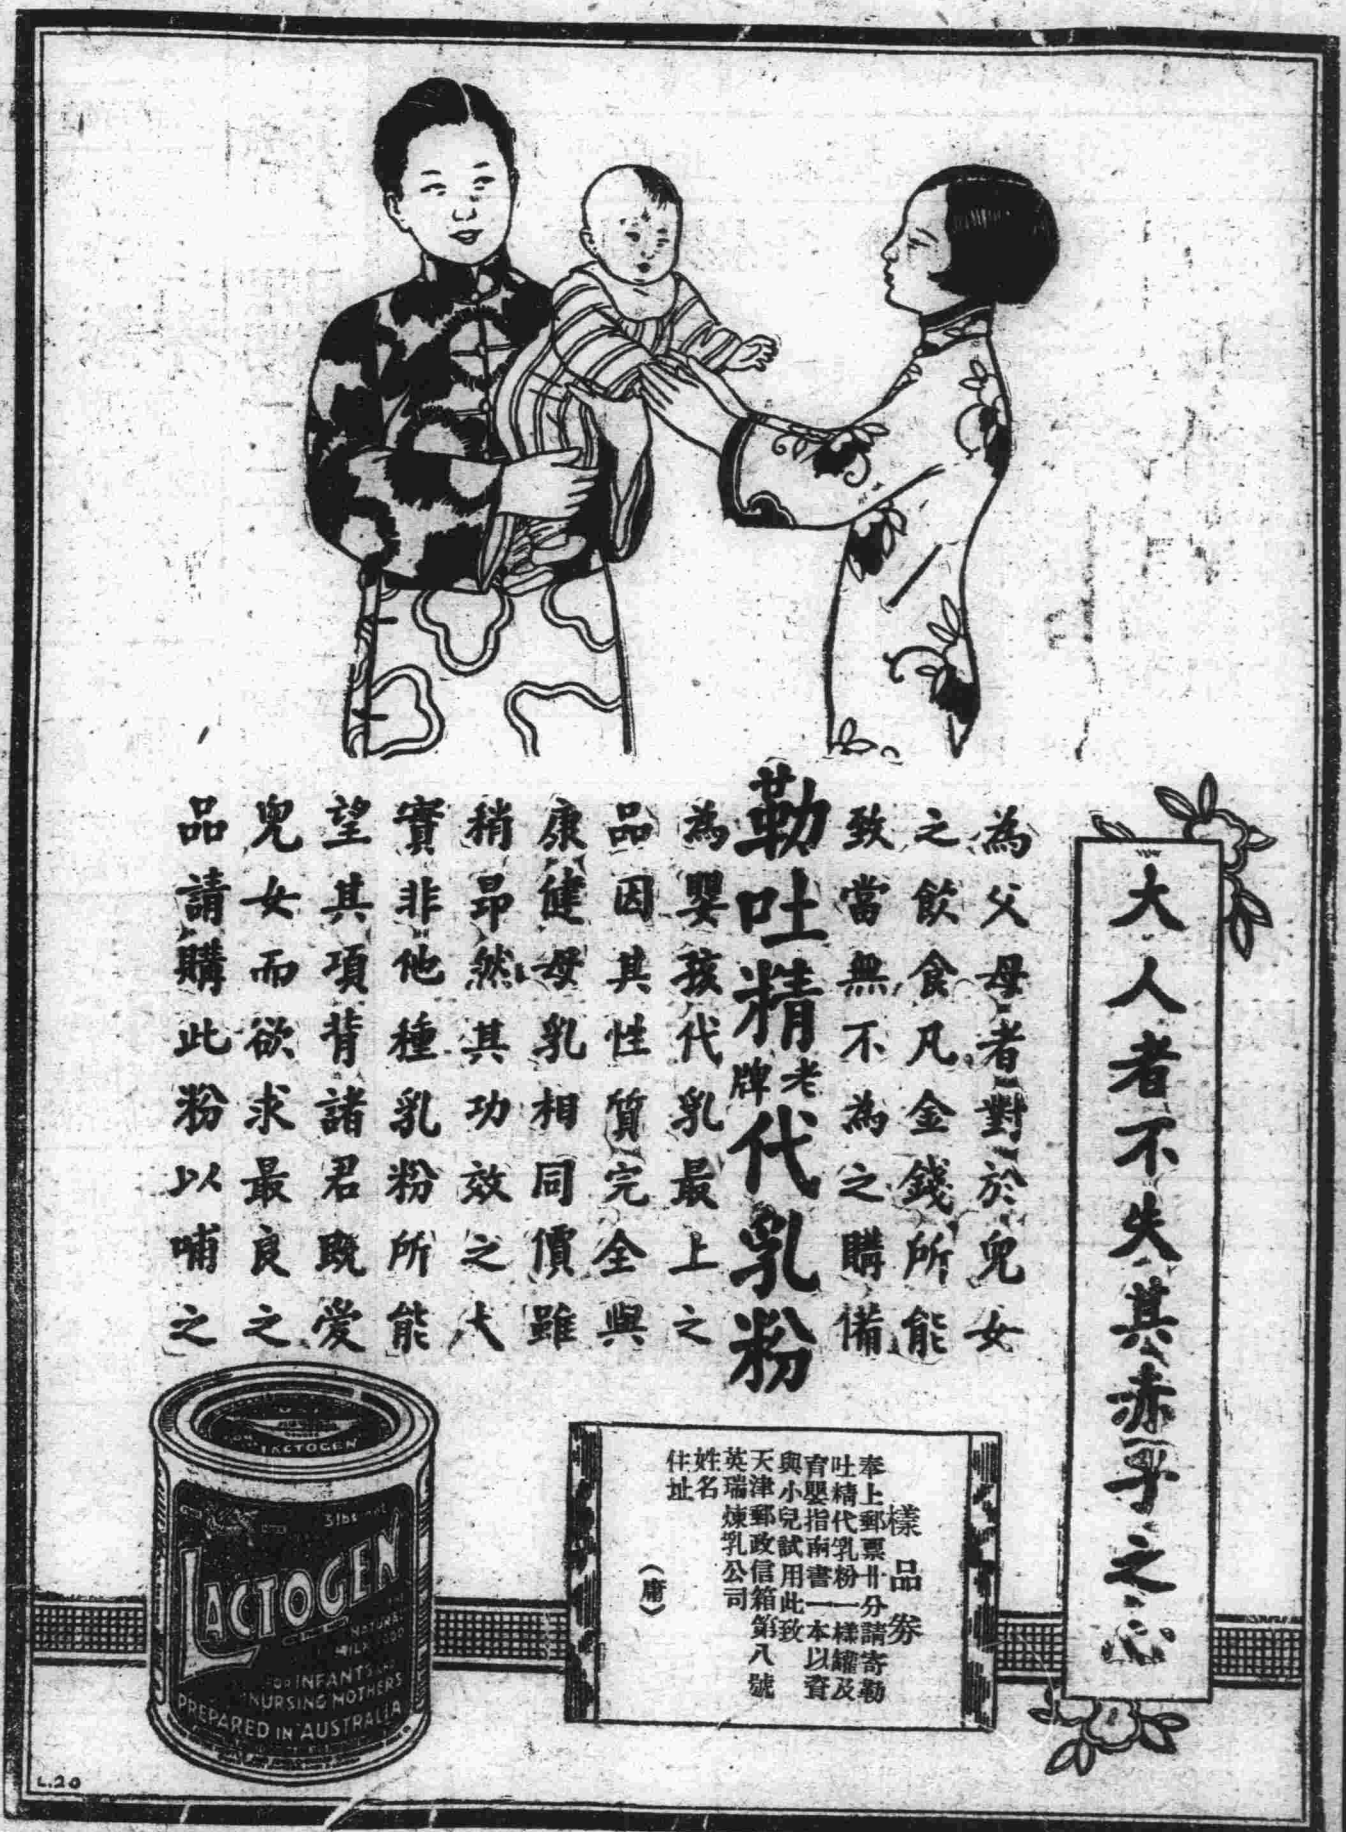 大人者不失其赤子之心
為父母者對於兒女
之飲食凡金錢所能
致當無不為之購備
勒吐精老牌代乳粉
為嬰孩代乳最上之
品因其性質完全與
康健母乳相同價雖
稍昂然其功效之大
實非他種乳粉所能
望其項背諸君既愛
兒女而欲求最良之
品請購此粉以哺之
樣品券
奉上郵票廿分請寄勒
吐精代乳粉一樣罐及
育嬰指南書一本以資
與小兒試用此致
天津郵政信箱第八號
英瑞煉乳公司
姓名
住址
(庸)
LACTOGEN
3lbs
LACTOGEN
NATURAL
MILK FOOD
FOR INFANTS AND
NURSING MOTHERS
PREPARED IN AUSTRALIA
L.20